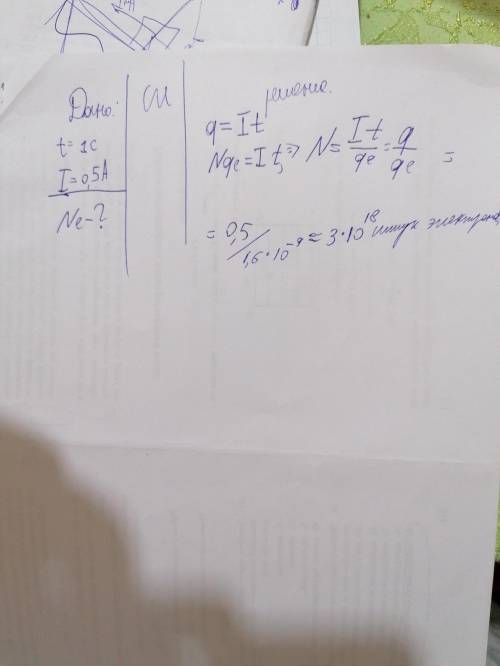 Дано:
t = 1с
I = 0,5А
Ne - ?
СИ
решение.
q = It
Nqe = It, => N = It/qe = q/qe =
= 0,5/1,6·10⁻⁹ ≈ 3·10¹⁸ штук электрона